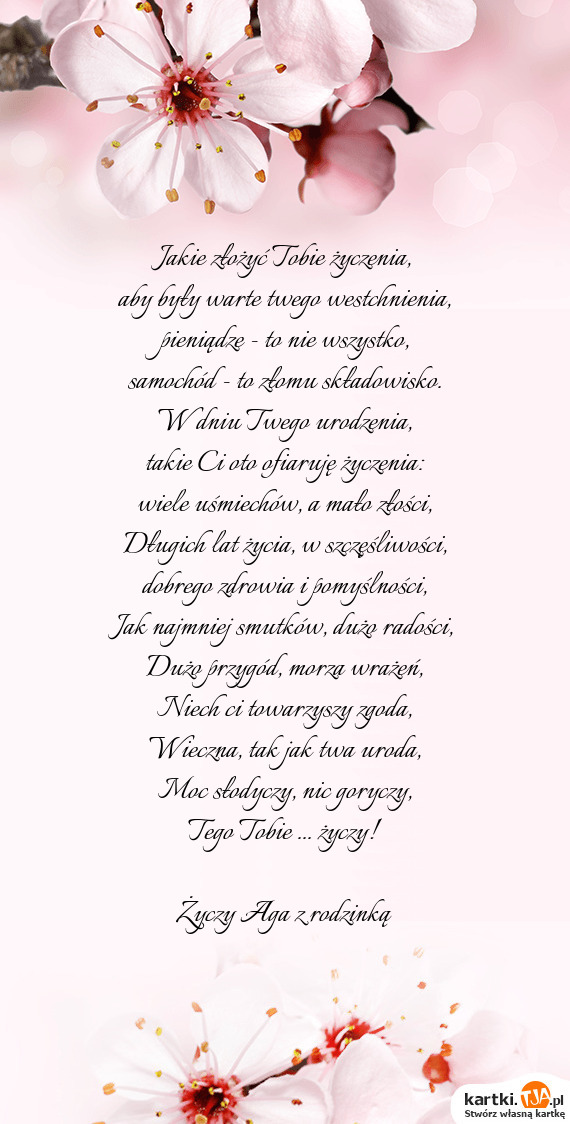 Jakie złożyć Tobie życzenia,
aby były warte twego westchnienia,
pieniądze - to nie wszystko,
samochód - to złomu składowisko.
W dniu Twego urodzenia,
takie Ci oto ofiaruję życzenia:
wiele uśmiechów, a mało złości,
Długich lat życia, w szczęśliwości,
dobrego zdrowia i pomyślności,
Jak najmniej smutków, dużo radości,
Dużo przygód, morza wrażeń,
Niech ci towarzyszy zgoda,
Wieczna, tak jak twa uroda,
Moc słodyczy, nic goryczy,
Tego Tobie ... życzy!
Życzy Aga z rodzinką
kartki.TJA.pl
Stwórz własną kartkę